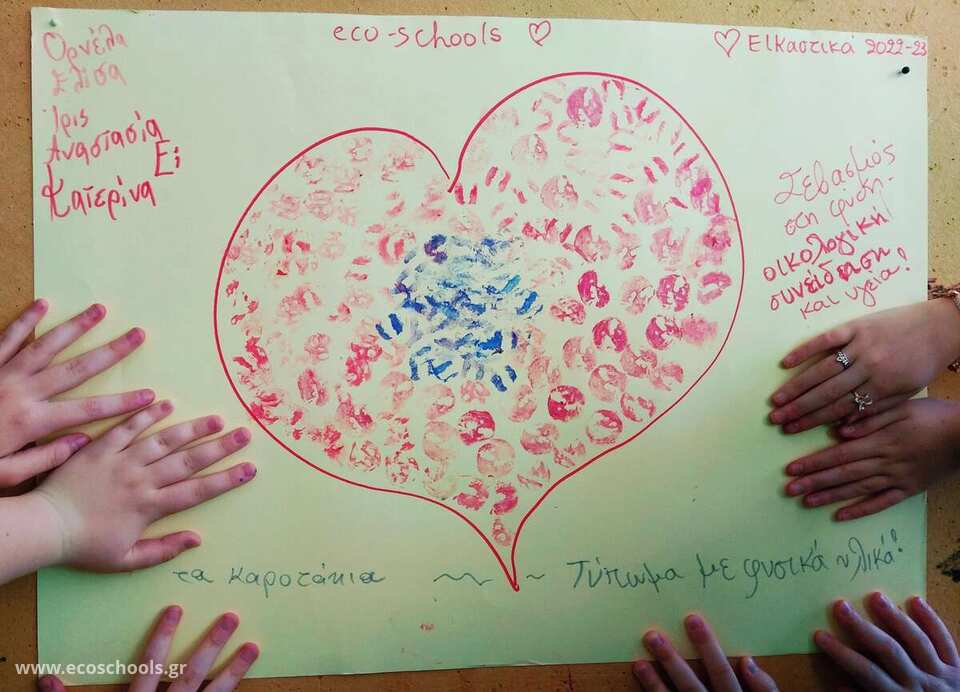 Ορνέλα
Ελίσα
Ίρις
Αναστασία
Ει
Κατερίνα
eco-schools ♡
♡ Εικαστικά 2022-23
Σεβασμός
στη φύση -
οικολογική
συνείδηση
και υγεία!
τα καροτάκια ~ ~ Τύπωμα με φυσικά υλικά!
www.ecoschools.gr